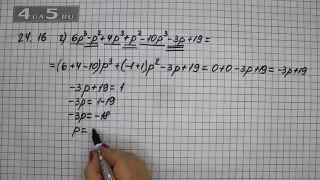 4АПЯ5.RU
24.16 г) 6p³-p²+4p³+p²-10p³-3p+19=
=(6+4-10)p³+(-1+1)p²-3p+19=0+0-3p+19=-3p+19
-3p+19=1
-3p=1-19
-3p=-18
p=